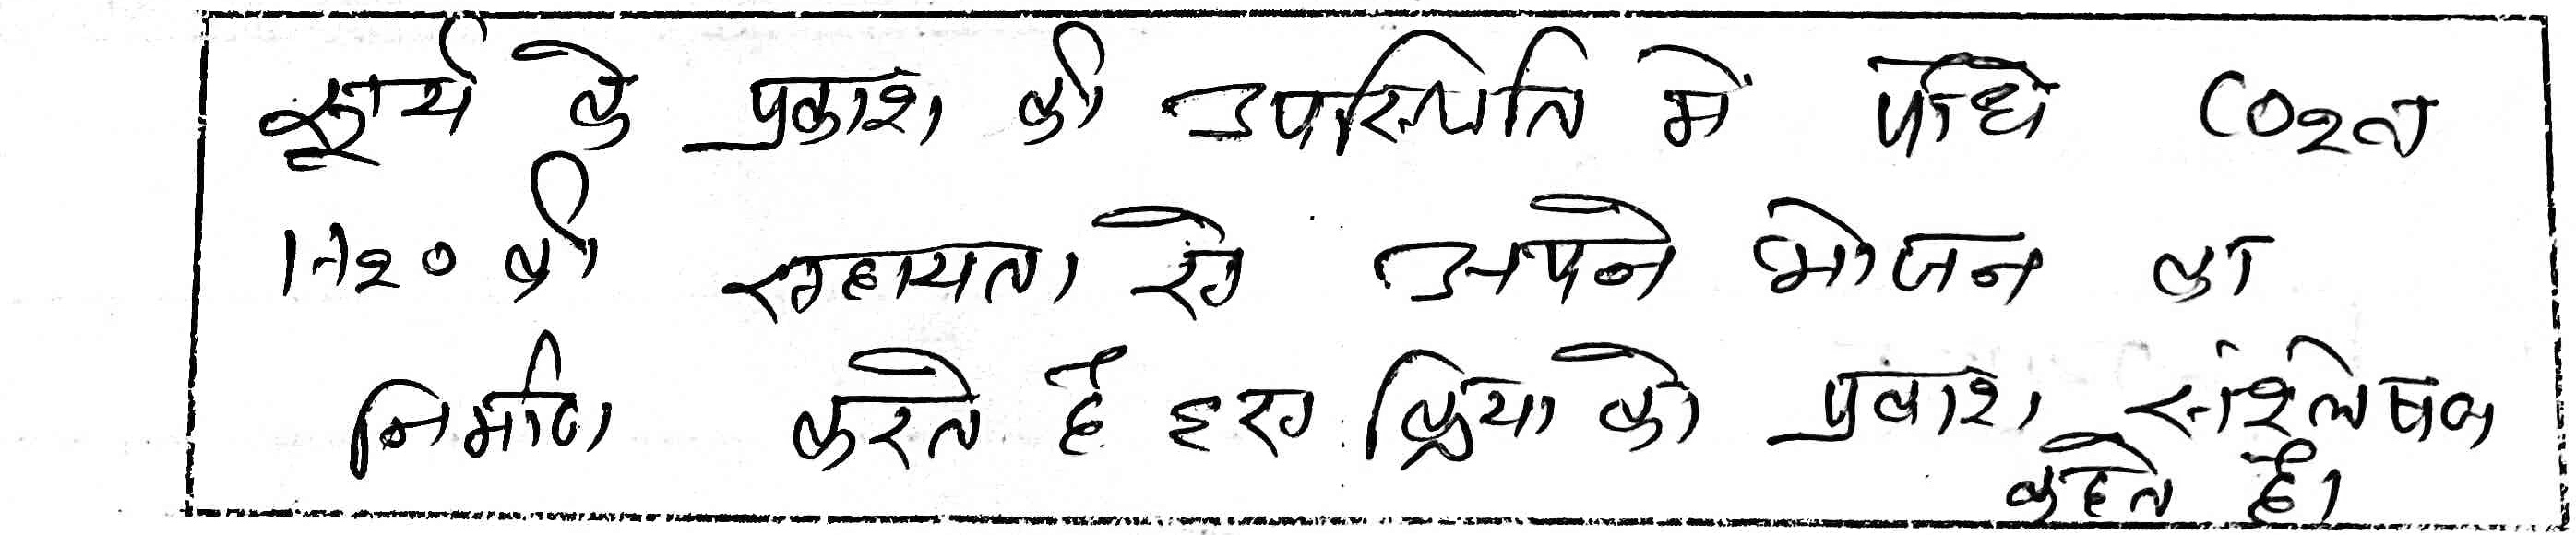 सूर्य के प्रकाश की उपस्थिति में पौधे CO2 व
H2O की सहायता से अपने भोजन का
निर्माण करते है इस क्रिया को प्रकाश संश्लेषण
कहते है।